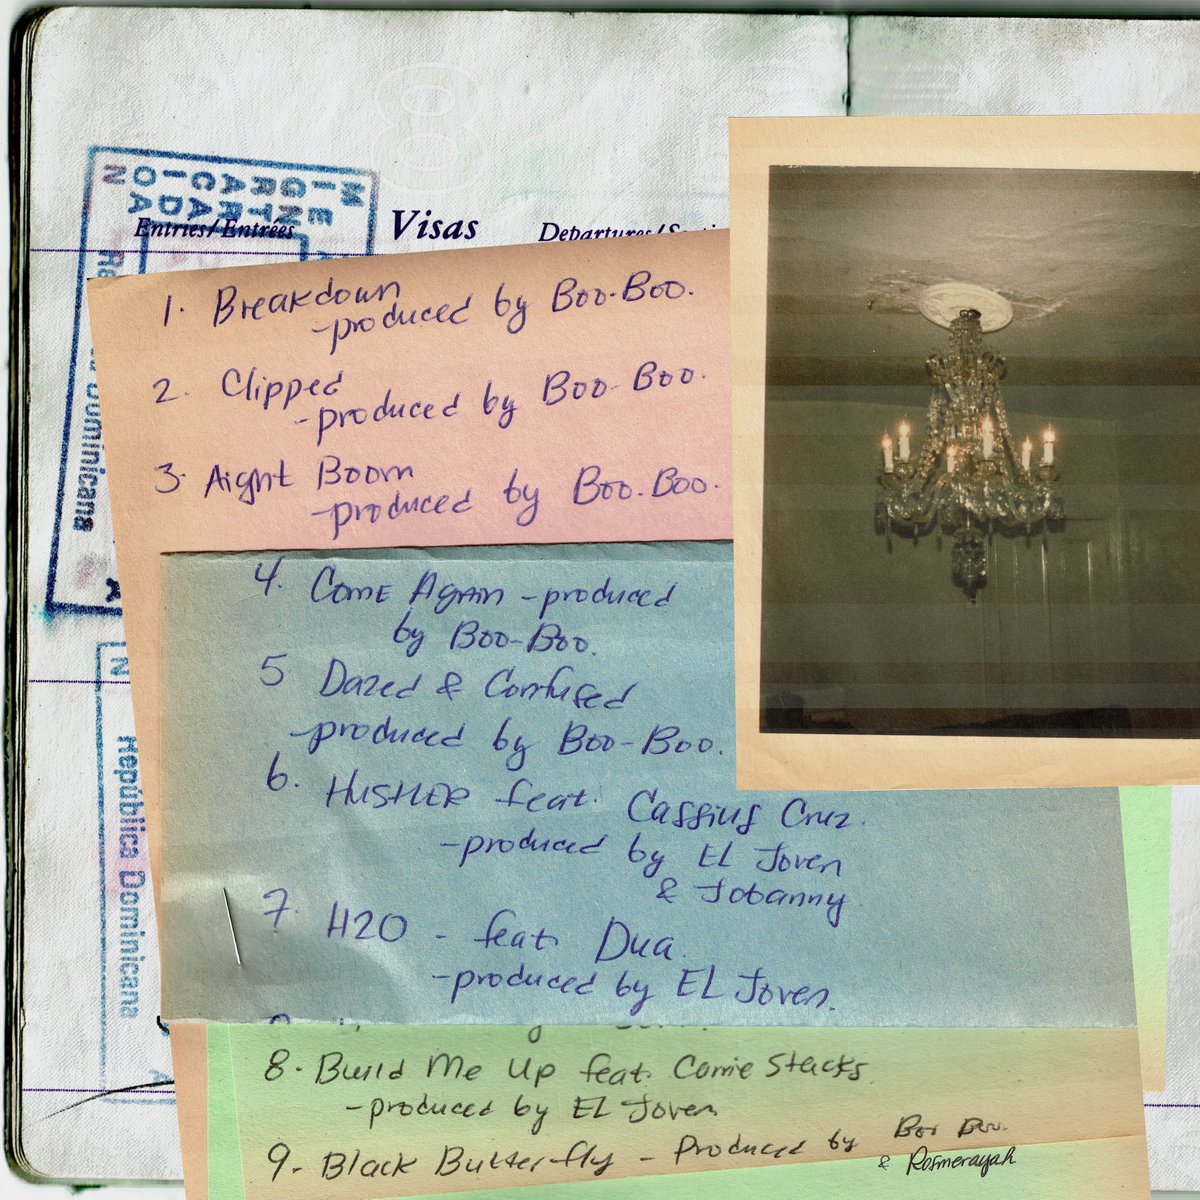 8
MIGRACION
ENTRADA
Entries/Entrées
Visas
Departures/
República Dominicana
1. Breakdown
-produced by Boo-Boo.
2. Clipped
-produced by Boo-Boo.
3. Aight Boom
-produced by Boo-Boo.
4. Come Again - produced
by Boo-Boo.
5 Dazed & Confused
-produced by Boo-Boo.
6. HUSTLER feat. Cassius Cruz.
-produced by EL Joven
& Jobanny
7. H2O - feat. Dua.
-produced by EL Joven.
8. Build Me Up feat. Carrie Stacks
-produced by EL Joven
9. Black Butterfly - Produced by Boo Boo.
& Rosmerayah